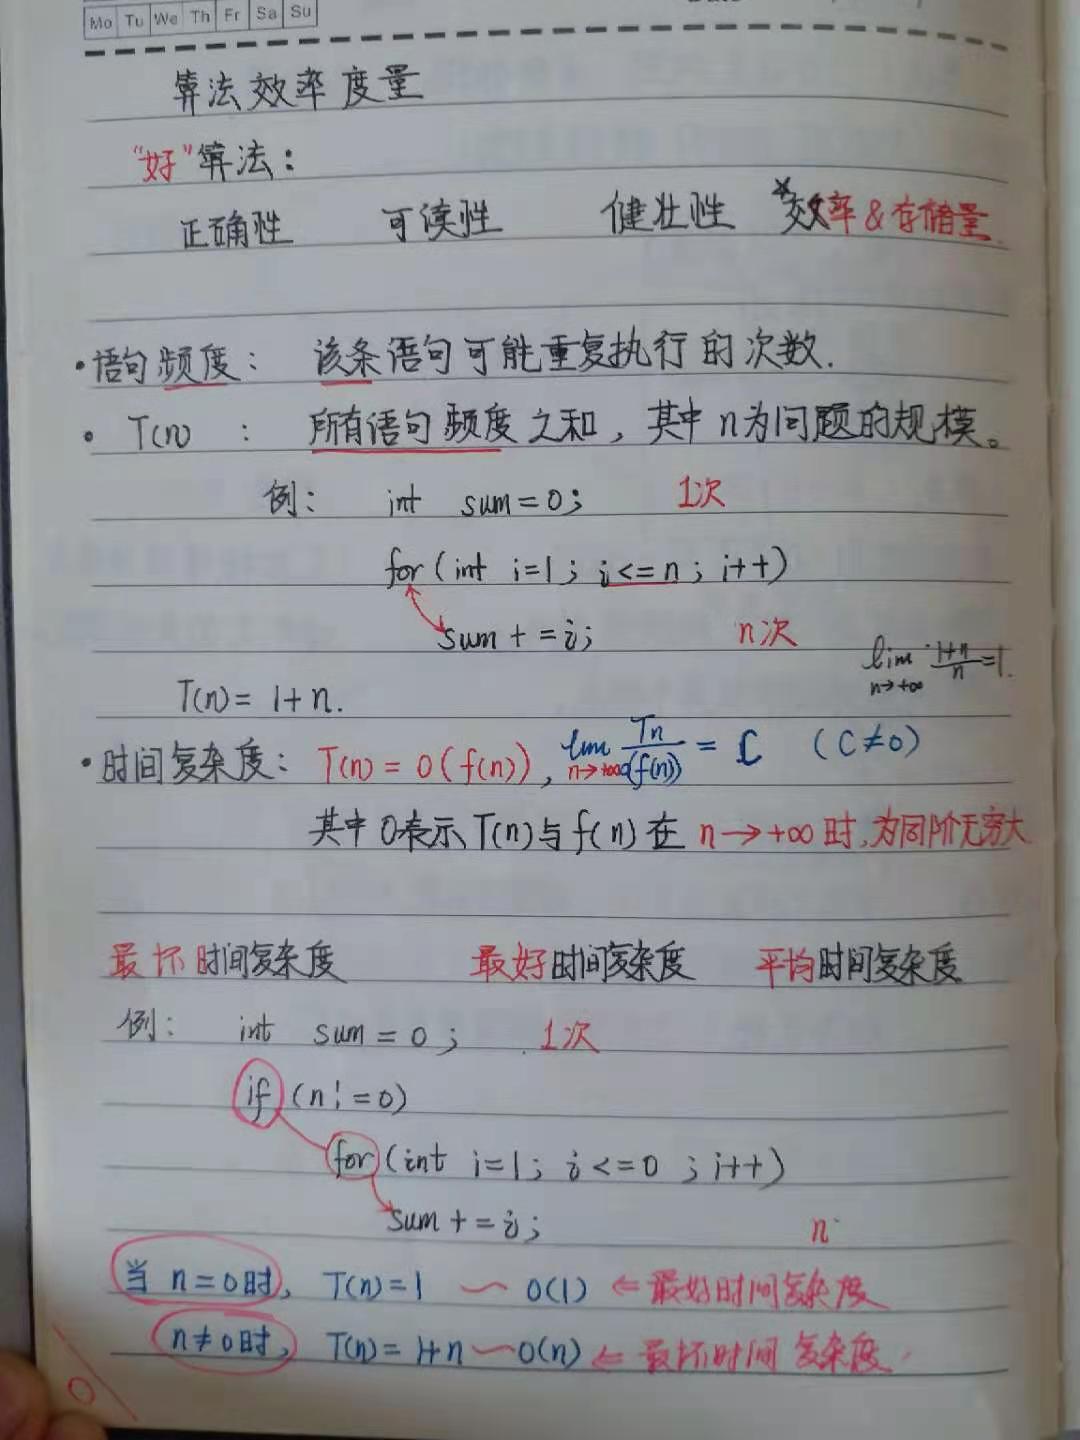 Mo Tu We Th Fr Sa Su
算法效率度量
"好"算法：
正确性 可读性 健壮性 *效率 & 存储量
·语句频度： 该条语句可能重复执行的次数.
·T(n) ： 所有语句频度之和，其中n为问题的规模。
例： int sum=0; 1次
for(int i=1; i<=n; i++)
sum+=i; n次
lim n→+∞ (1+n)/n=1.
T(n)= 1+n.
·时间复杂度： T(n)=O(f(n)), lim n→+∞ Tn/O(f(n)) = C (C≠0)
其中O表示T(n)与f(n)在 n→+∞时,为同阶无穷大
最坏时间复杂度 最好时间复杂度 平均时间复杂度
例： int sum=0; 1次
if (n!=0)
for(int i=1; i<=0; i++)
sum+=i; n
当 n=0时, T(n)=1 ~ O(1) ← 最好时间复杂度
n≠0时, T(n)=1+n ~ O(n) ← 最坏时间复杂度.